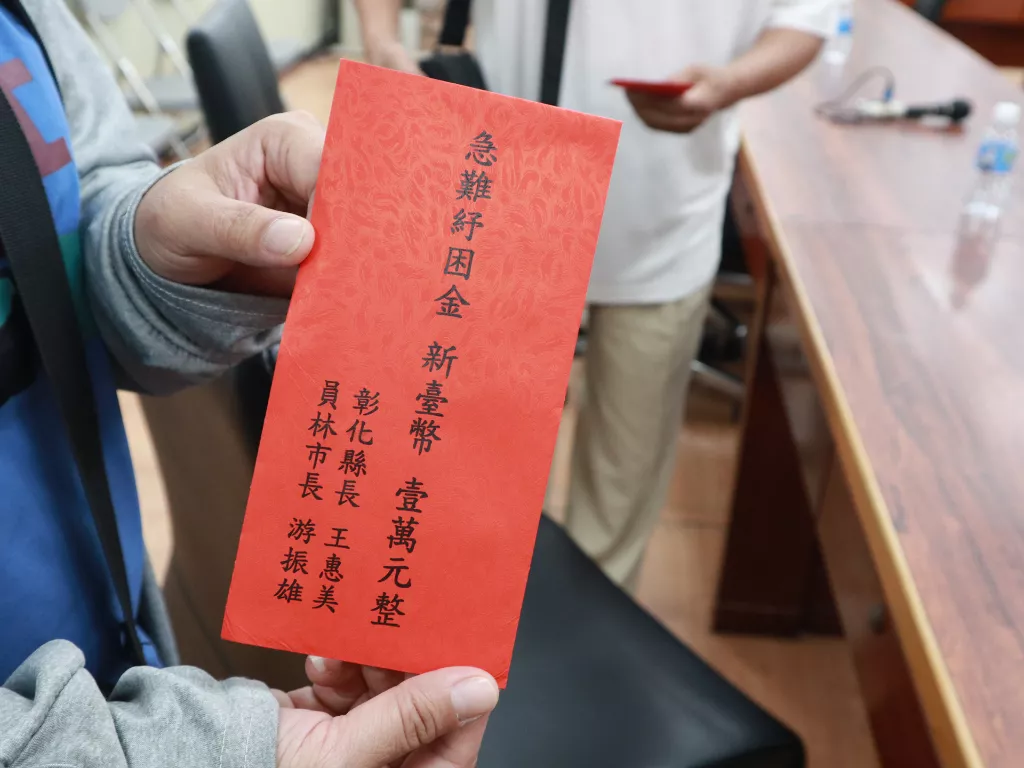 急難紓困金 新臺幣 壹萬元整
彰化縣長 王惠美
員林市長 游振雄